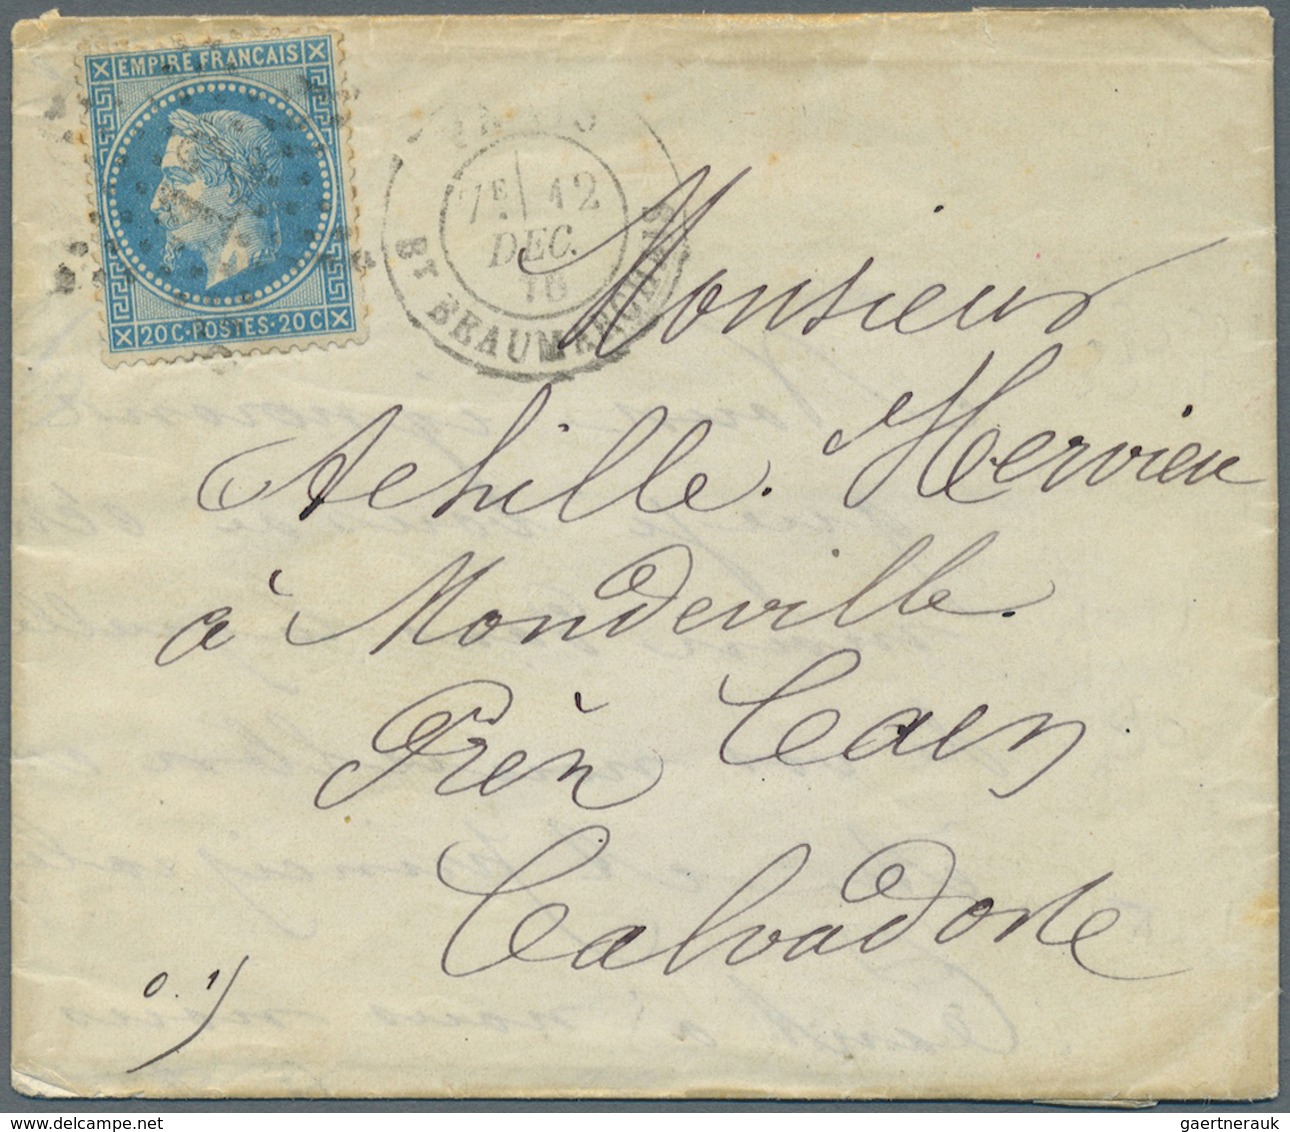 EMPIRE FRANCAIS
20 C · POSTES · 20 C
7E 12
DEC.
70
BT BEAUMARCHAIS
Monsieur
Achille Hervieu
à Mondeville.
Près Caen
Calvados
gaertnerauk